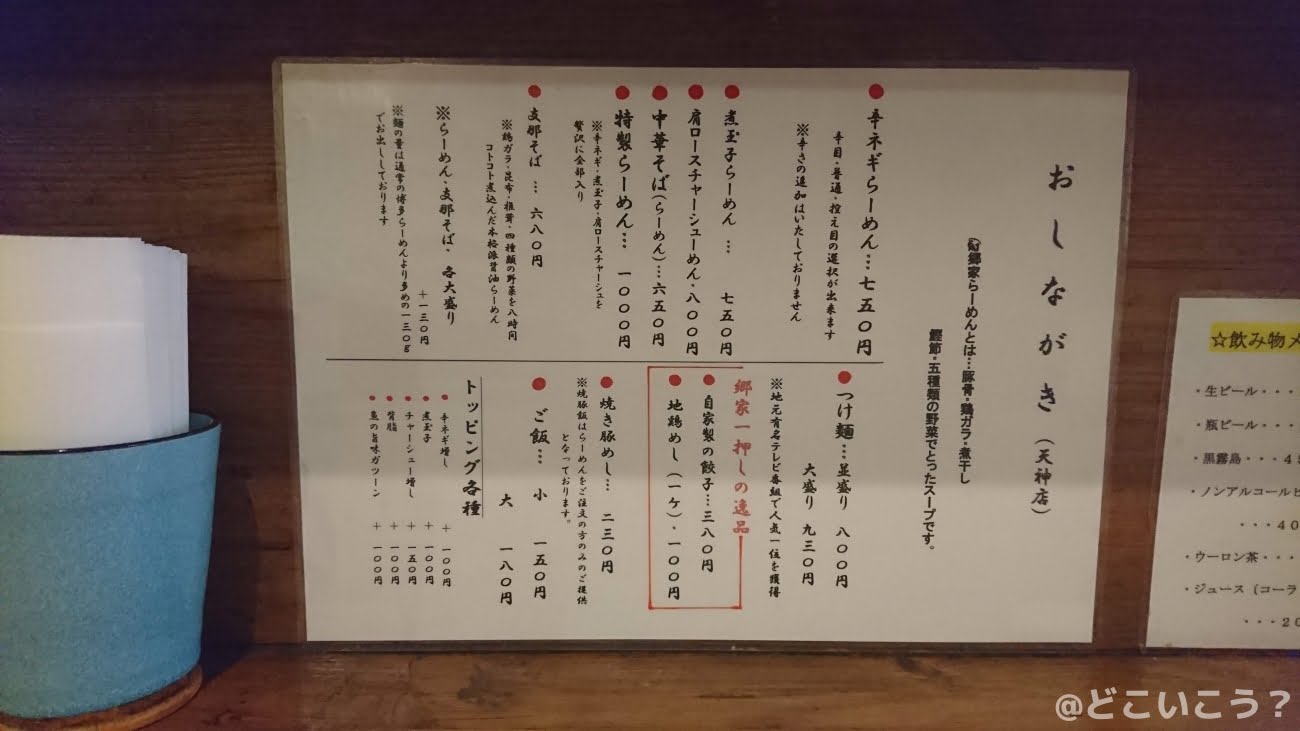 おしながき(天神店)
郷家らーめんとは…豚骨・鶏ガラ・煮干し
鰹節・五種類の野菜でとったスープです。
辛ネギらーめん…七五〇円
辛目・普通・控え目の選択が出来ます
※辛さの追加はいたしておりません
煮玉子らーめん … 七五〇円
肩ロースチャーシューめん・八〇〇円
中華そば(らーめん)…六五〇円
特製らーめん… 一〇〇〇円
※辛ネギ・煮玉子・肩ロースチャーシュを
贅沢に全部入り
支那そば … 六八〇円
※鶏ガラ・昆布・椎茸・四種類の野菜を八時間
コトコト煮込んだ本格派醤油らーめん
※らーめん・支那そば・各大盛り
+一三〇円
※麺の量は通常の博多らーめんより多めの一三〇g
でお出ししております
つけ麺…並盛り 八〇〇円
大盛り 九三〇円
※地元有名テレビ番組で人気一位を獲得
郷家一押しの逸品
自家製の餃子…三八〇円
地鶏めし(一ケ)・一〇〇円
焼き豚めし… 二三〇円
※焼豚飯はらーめんをご注文の方のみのご提供
となっております。
ご飯… 小 一五〇円
大 一八〇円
トッピング各種
辛ネギ増し + 一〇〇円
煮玉子 + 一〇〇円
チャーシュー増し + 一五〇円
背脂 + 一〇〇円
魚の旨味ガツーン + 一〇〇円
☆飲み物メ
・生ビール・・・
・瓶ビール・・・
・黒霧島・・・4
・ノンアルコールビ
・・・40
・ウーロン茶・・・
・ジュース(コーラ
・・・20
@どこいこう?